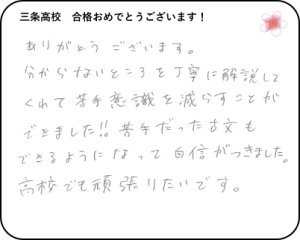 三条高校　合格おめでとうございます！
ありがとう ございます。
分からないところを丁寧に解説して
くれて苦手意識を減らすことが
できました!! 苦手だった古文も
できるようになって 自信がつきました。
高校でも頑張りたいです。